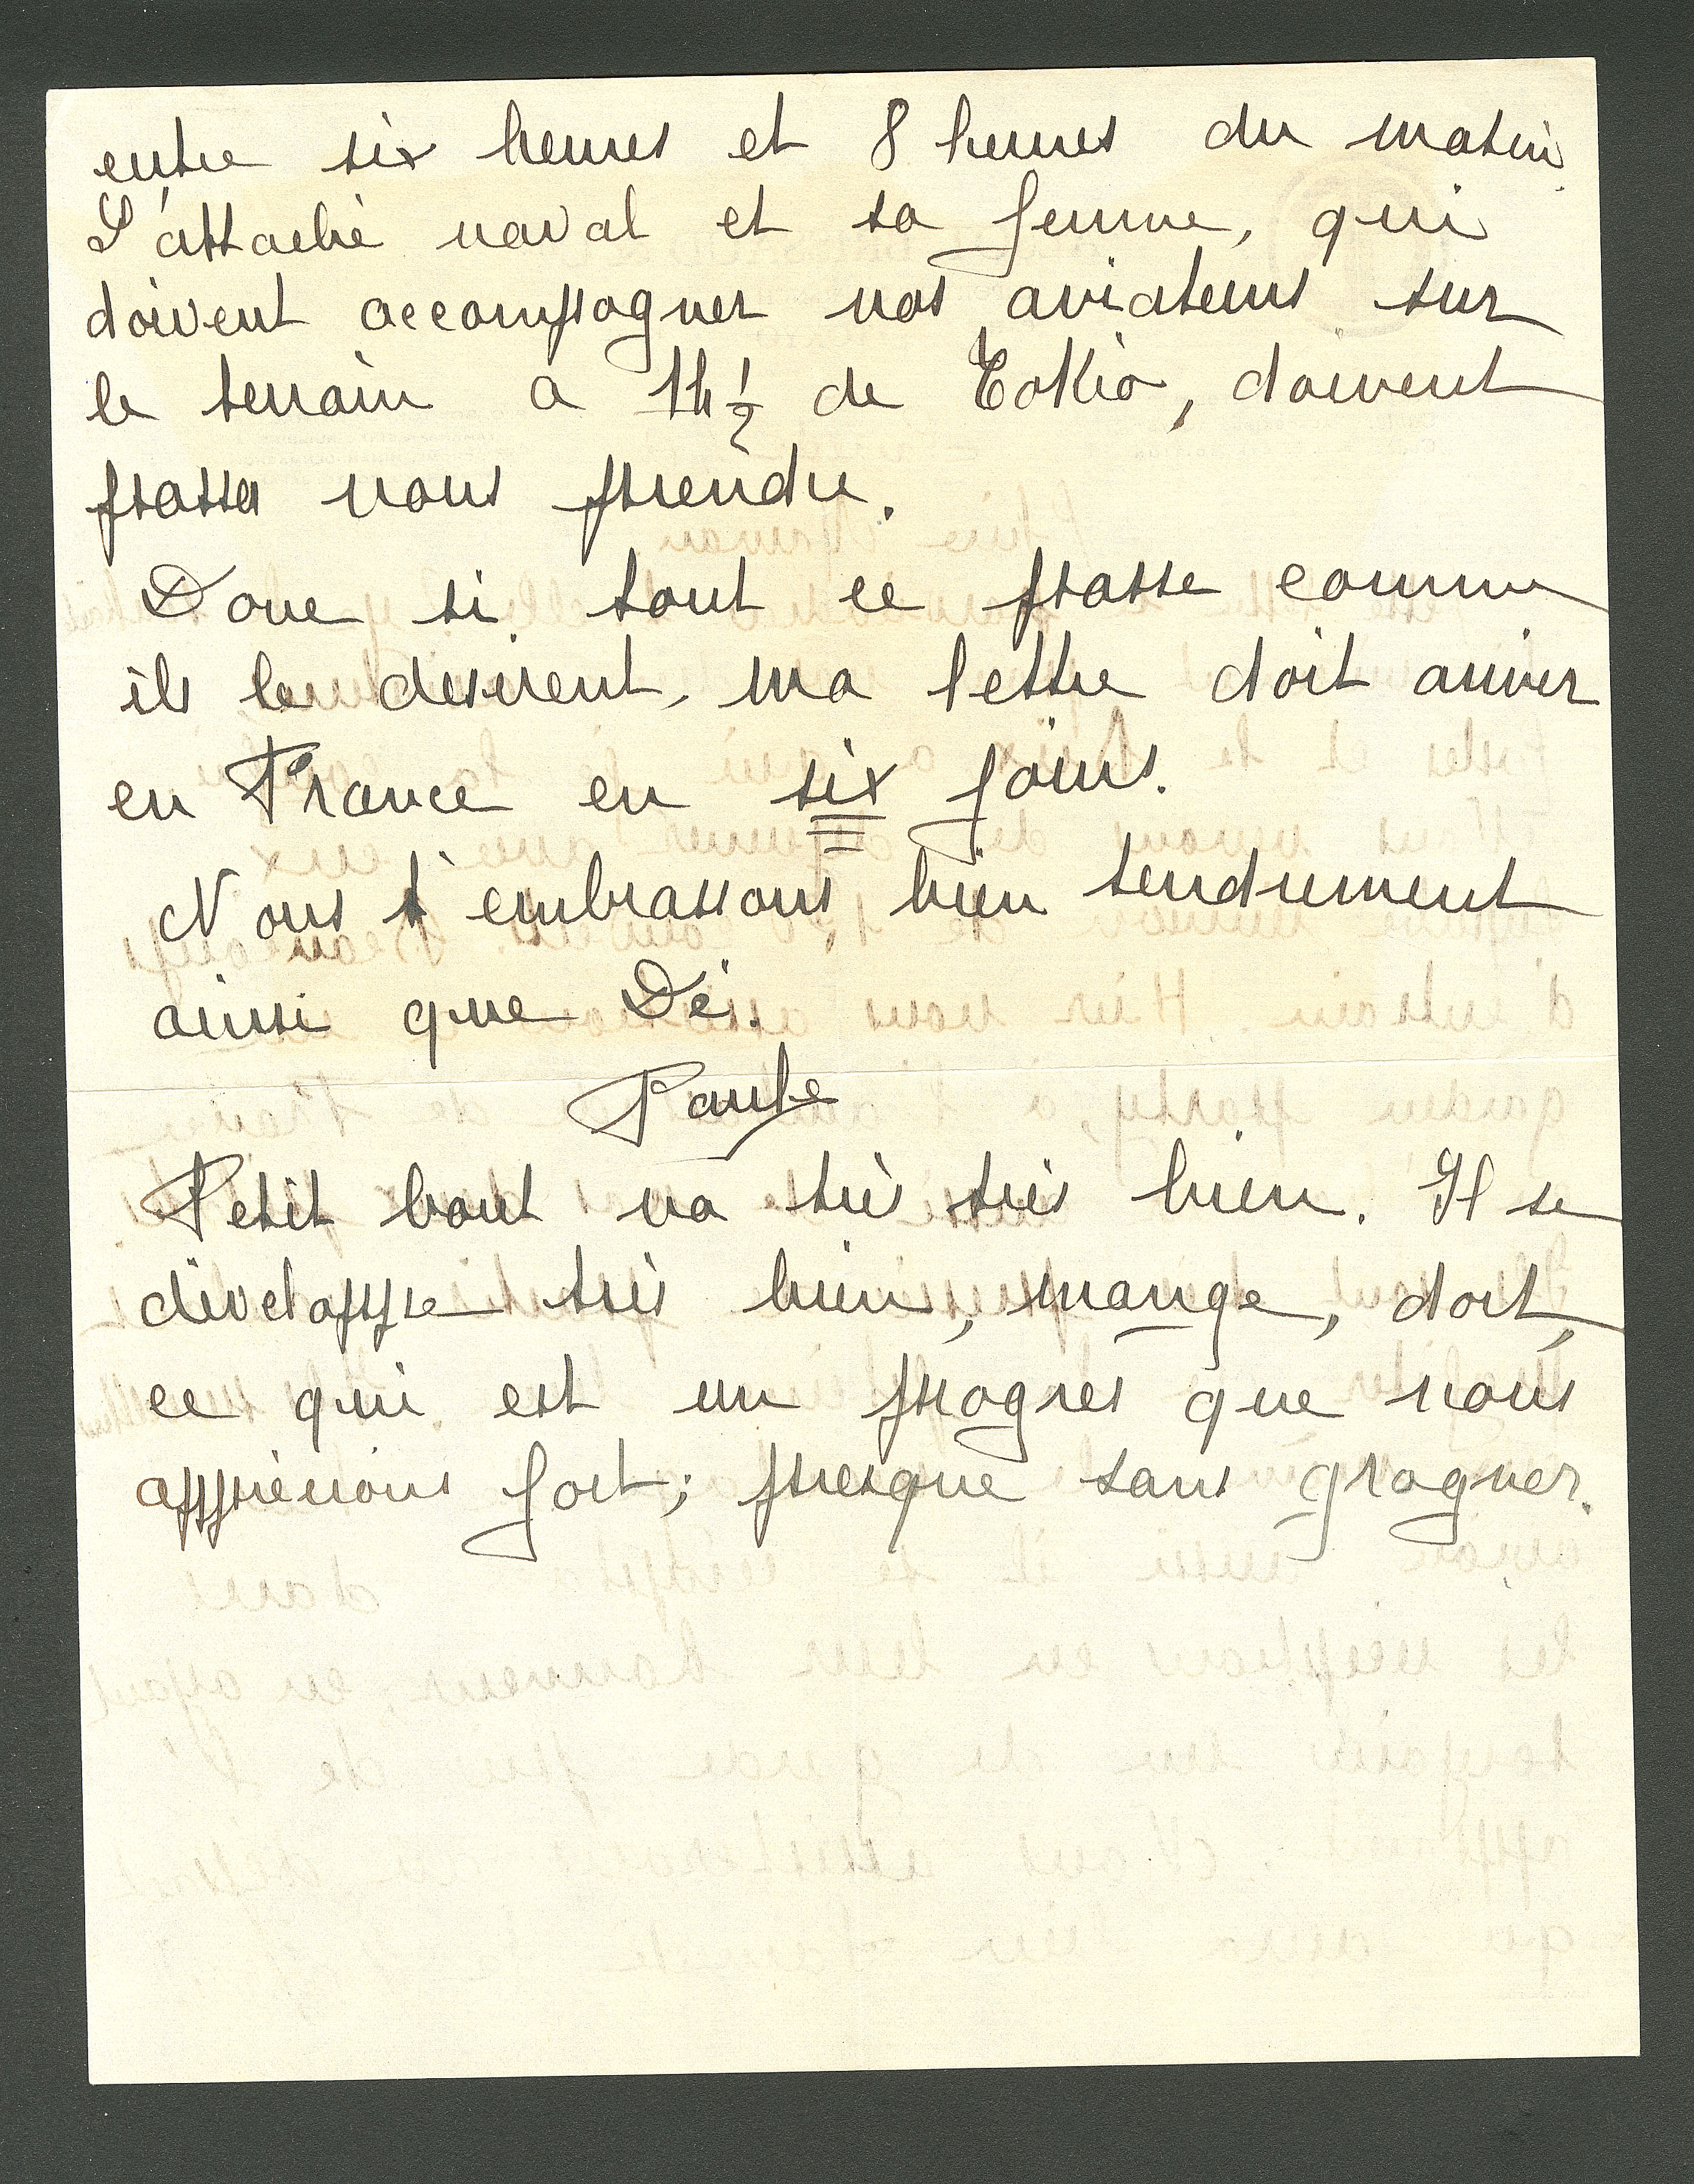 entre six heures et 8 heures du matin.
L'attaché naval et sa femme, qui
doivent accompagner nos aviateurs sur
le terrain a 1h ½ de Tokio, doivent
passer nous prendre.
Donc si tout ce passe comme
ils le desirent, ma lettre doit arriver
en France en six jours.
Nous t'embrassons bien tendrement
ainsi que Dé.
Paule
Petit bout va très très bien. Il se
développe très bien, mange, dort,
ce qui est un progres que nous
apprécions fort; presque sans grogner.